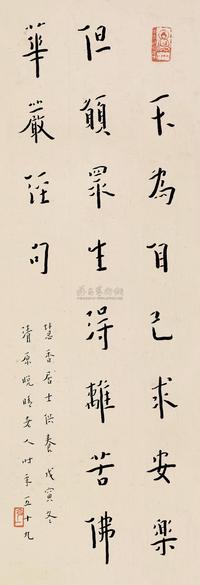 不為自己求安樂
但願眾生得離苦佛
華嚴經句
慧香居士供養戊寅冬
清原晚晴老人時年五十九